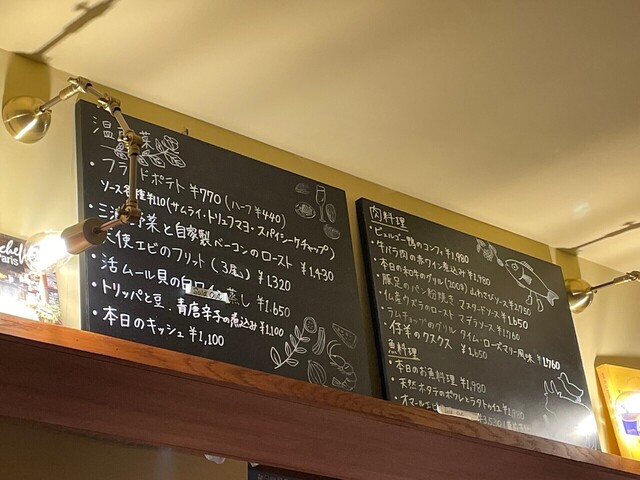 温前菜
・フライドポテト ¥770 (ハーフ ¥440)
ソース各種¥110(サムライ・トリュフマヨ・スパイシーケチャップ)
・三浦野菜と自家製ベーコンのロースト ¥1,430
・天使エビのフリット (3尾) ¥1,320
・活ムール貝の白ワイン蒸し ¥1,650
・トリッパと豆、青唐辛子の煮込み ¥1,100
・本日のキッシュ ¥1,100
肉料理
・ビュルゴー鴨のコンフィ ¥1,980
・牛バラ肉の赤ワイン煮込み ¥1,980
・本日の和牛のグリル(200g) 山わさびソース ¥2,750
・豚足のパン粉焼き マスタードソース ¥1,650
・仏産ウズラのロースト マデラソース ¥1,760
・ラムチョップのグリル タイム・ローズマリー風味 ¥1,760
・仔羊のクスクス ¥1,650
魚料理
・本日のお魚料理 ¥1,980
・天然ホタテのポワレとラタトゥイユ ¥1,980
・オマールエビ
Paris